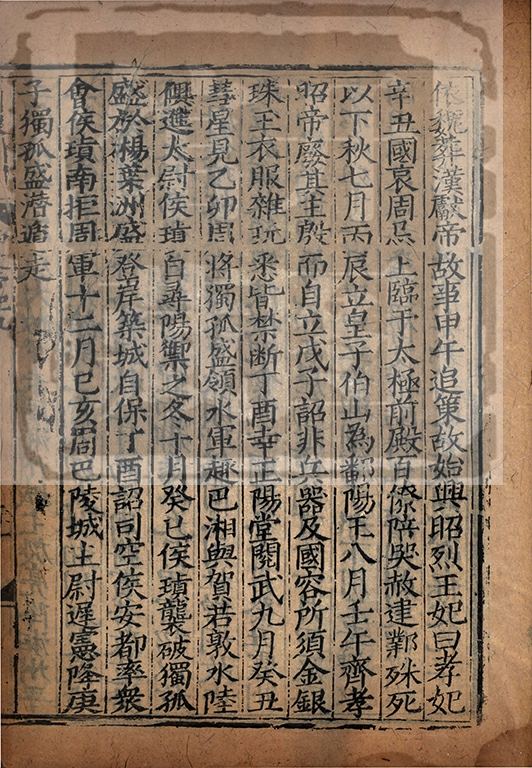 依魏葬漢獻帝故事甲午追策故始興昭烈王妃曰孝妃
辛丑國哀周忌上臨于太極前殿百僚陪哭赦建鄴殊死
以下秋七月丙辰立皇子伯山為鄱陽王八月壬午齊孝
昭帝廢其主殷而自立戊子詔非兵器及國容所須金銀
珠玉衣服雜玩悉皆禁斷丁酉幸正陽堂閱武九月癸丑
彗星見乙卯周將獨孤盛領水軍趣巴湘與賀若敦水陸
俱進太尉侯瑱自尋陽禦之冬十月癸巳侯瑱襲破獨孤
盛於楊葉洲盛登岸築城自保丁酉詔司空侯安都率衆
會侯瑱南拒周軍十二月己亥周巴陵城主尉遲憲降庚
子獨孤盛潛遁走